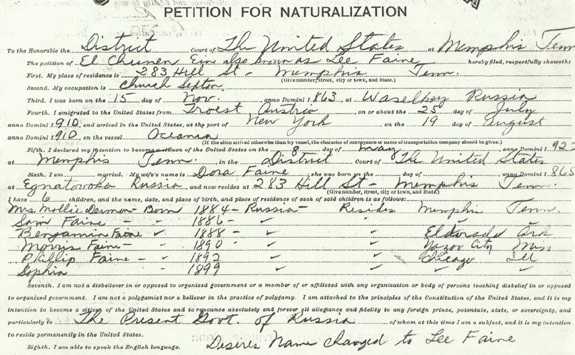 PETITION FOR NATURALIZATION
To the Honorable the District Court of The United States at Memphis Tenn
The petition of El Chunen Ein also known as Lee Faine hereby filed, respectfully showeth:
First. My place of residence is 283 Hill St - Memphis Tenn.
(Give number, street, city or town, and State.)
Second. My occupation is Church Sexton
Third. I was born on the 15 day of Nov. anno Domini 1863 at Russia
Fourth. I emigrated to the United States from Triest Austria on or about the 25 day of July
anno Domini 1910, and arrived in the United States, at the port of New York on the 19 day of August
anno Domini 1910, on the vessel Oceania
(If the alien arrived otherwise than by vessel, the character of conveyance or name of transportation company should be given.)
Fifth. I declared my intention to become a citizen of the United States on the 8 day of anno Domini 192
at Memphis Tenn. in the District Court of The United States
Sixth. I am married. My wife's name is Dora Faine anno Domini 1865
at Russia, and now resides at 283 Hill St - Memphis Tenn.
(Give number, street, city or town, and State.)
I have 6 children, and the name, date, and place of birth, and place of residence of each of said children is as follows:
Mrs. Mollie Born 1884 - Russia - Resides Memphis Tenn.
Sam Faine - 1886 - " " "
Benjamin Faine " 1888 - " " Eldorado Ark
Morris Faine - 1890 - " " Yazoo City Miss
Phillip Faine - " 1892 " " Chicago Ill
Sophia 1899 " " "
Seventh. I am not a disbeliever in or opposed to organized government or a member of or affiliated with any organization or body of persons teaching disbelief in or opposed
to organized government. I am not a polygamist nor a believer in the practice of polygamy. I am attached to the principles of the Constitution of the United States, and it is my
intention to become a citizen of the United States and to renounce absolutely and forever all allegiance and fidelity to any foreign prince, potentate, state, or sovereignty, and
particularly to The Present Govt. of Russia of whom at this time I am a subject, and it is my intention
to reside permanently in the United States.
Eighth. I am able to speak the English language. Desires Name changed to Lee Faine